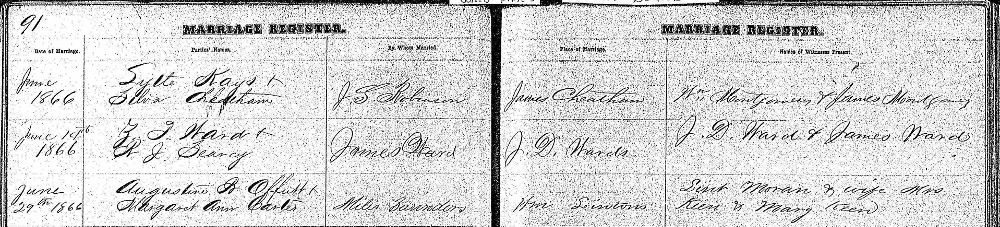 91
MARRIAGE REGISTER. MARRIAGE REGISTER.
Date of Marriage. Parties' Names. By Whom Married. Place of Marriage. Names of Witnesses Present.
June 1866 Kays & Silva Cheatham J S Robinson James Cheatham Wm Montgomery & James Montgomery
June 1866 Ward & J. Searcy James Ward J. D. Wards J. D Ward & James Ward
June 29th 1866 Augustine Offutt & Margaret Ann Carter Miles Saunders Wm Moran & wife Mrs
Keen & Mary Keen